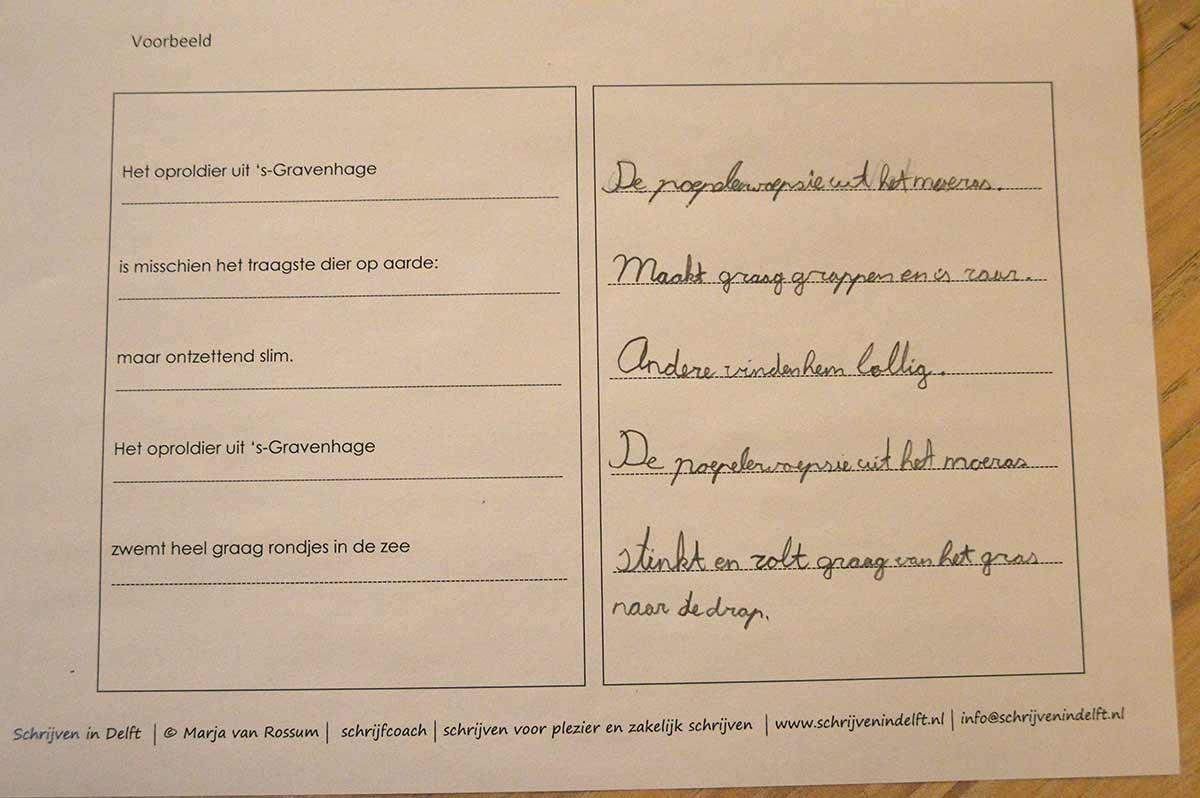 Voorbeeld
Het oproldier uit ‘s-Gravenhage
is misschien het traagste dier op aarde:
maar ontzettend slim.
Het oproldier uit ‘s-Gravenhage
zwemt heel graag rondjes in de zee
De poepelewoepsie uit het moeras.
Maakt graag grappen en is raar.
Andere vinden hem lollig.
De poepelewoepsie uit het moeras
stinkt en rolt graag van het gras
naar de drap.
Schrijven in Delft | © Marja van Rossum | schrijfcoach | schrijven voor plezier en zakelijk schrijven | www.schrijvenindelft.nl | info@schrijvenindelft.nl